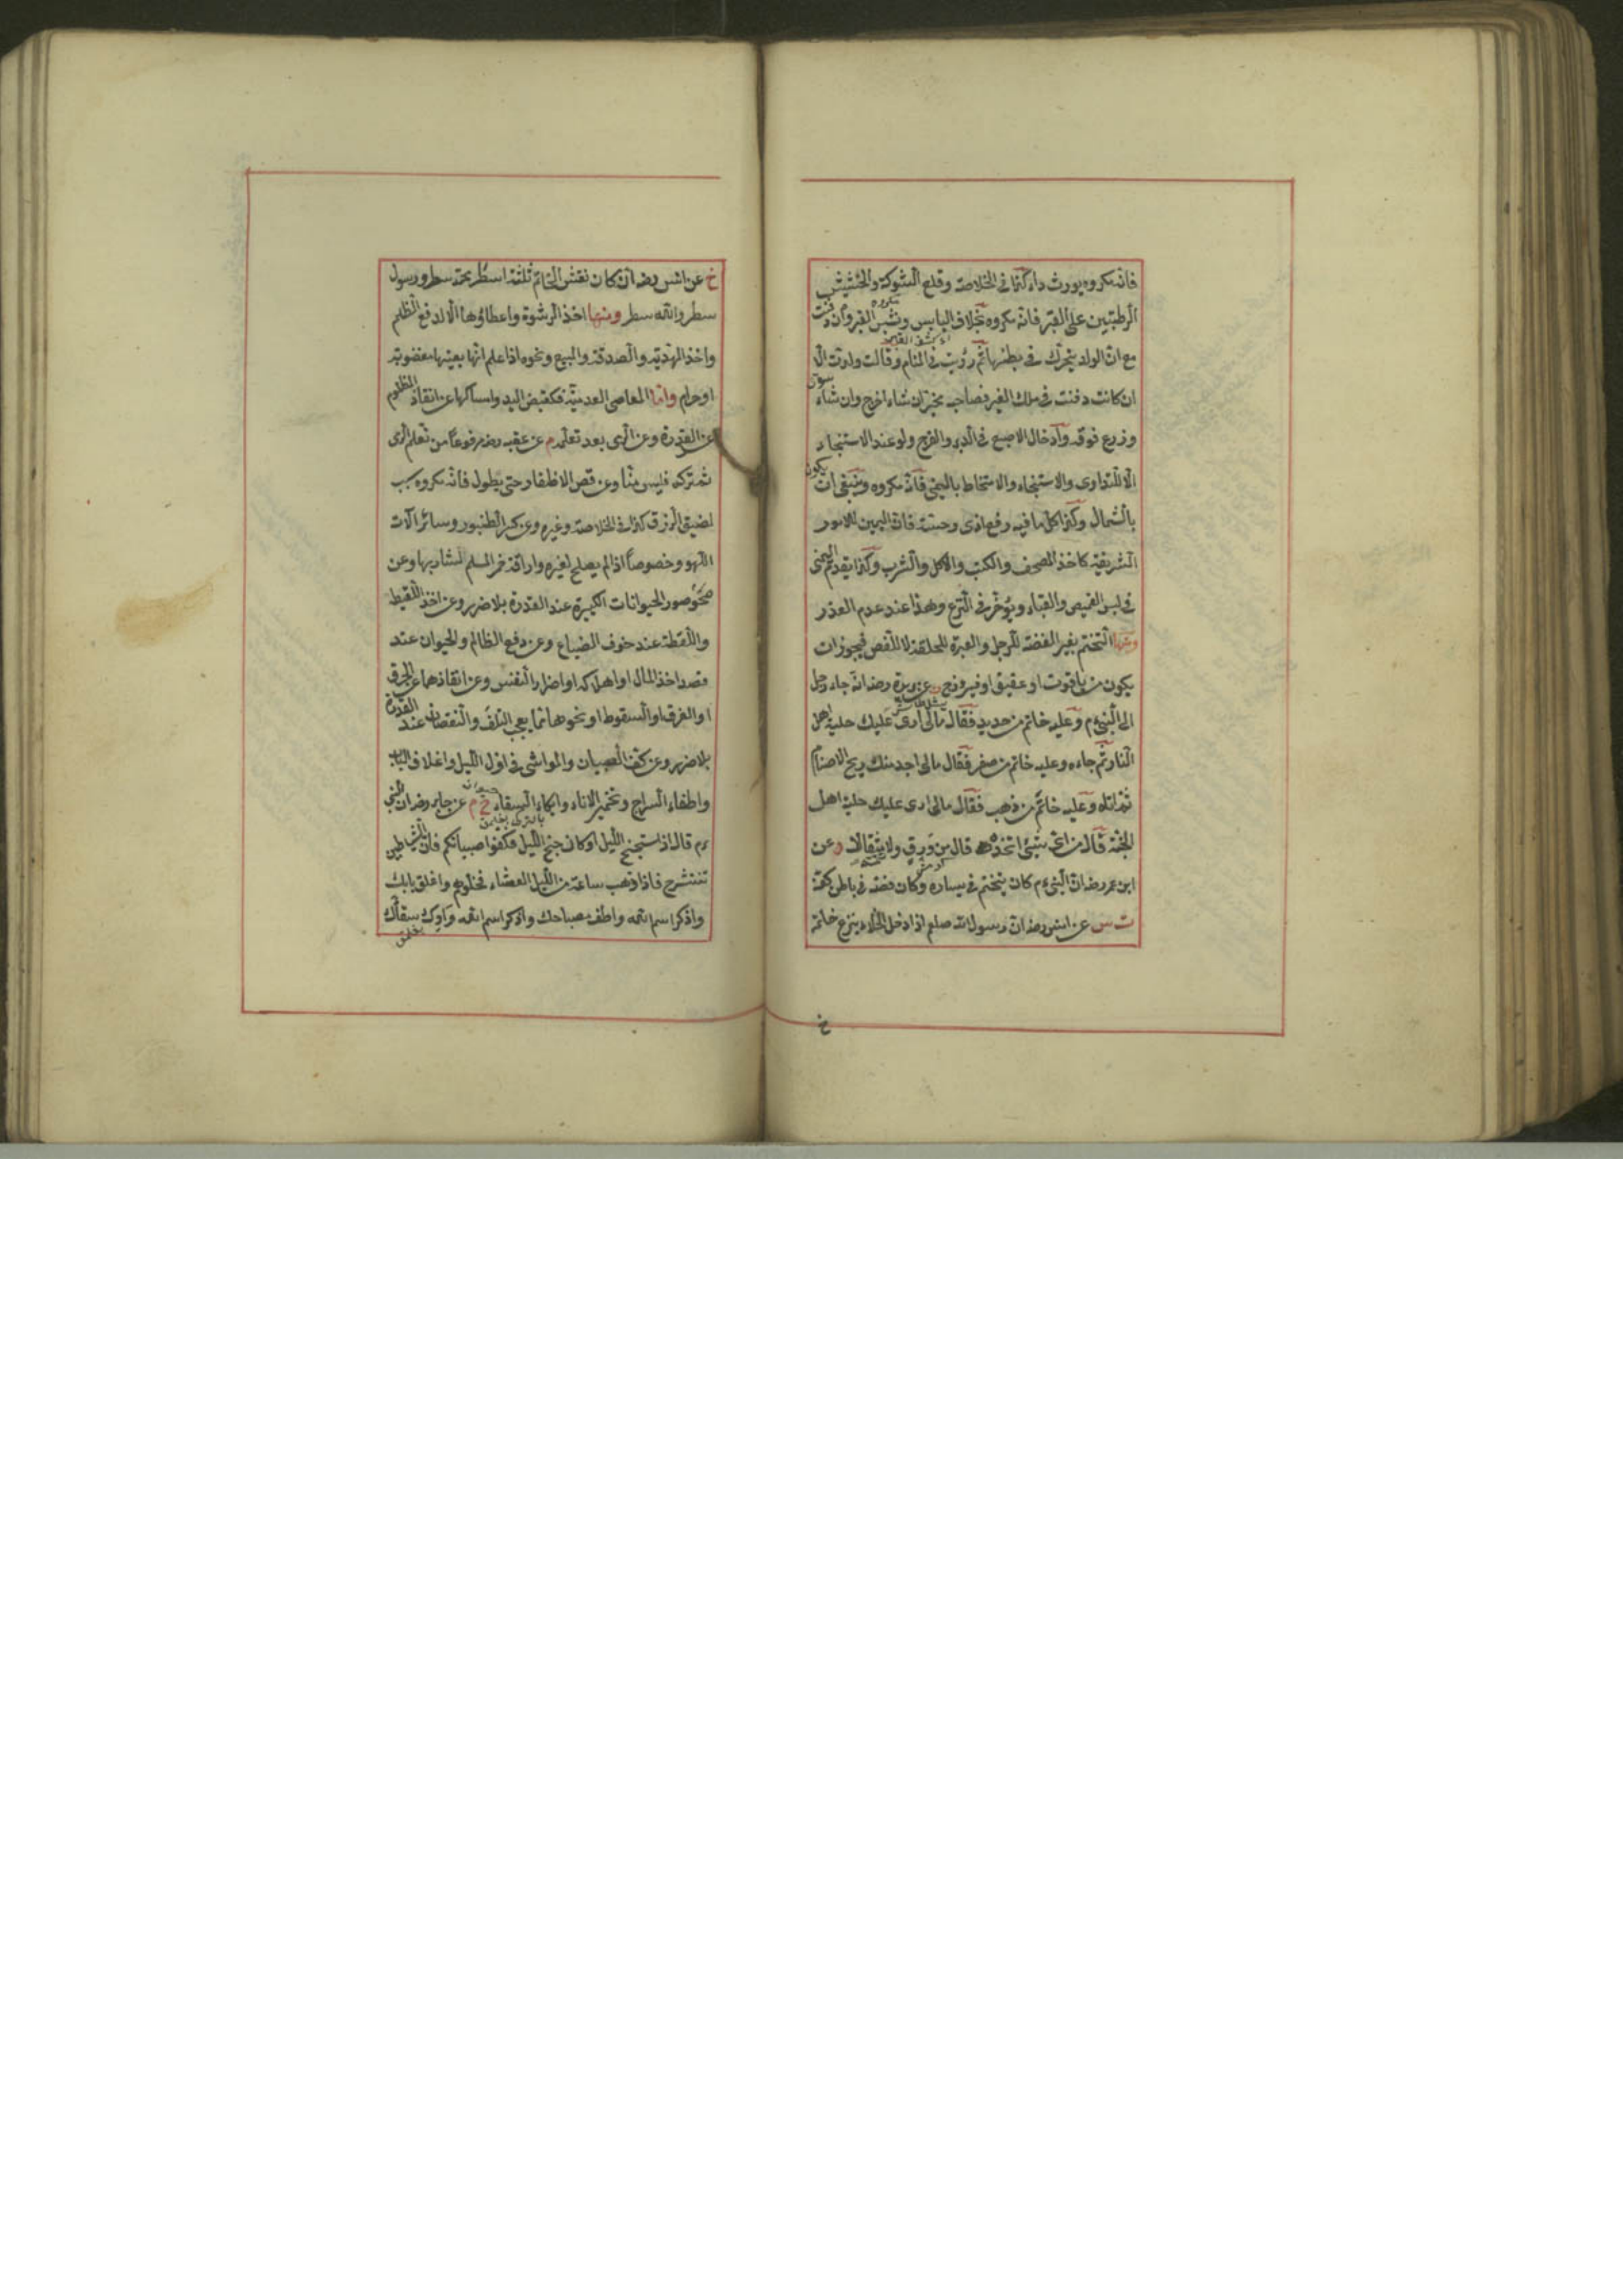 فانه مكروه يورث داء كذا فى الخلاصة وقلع الشوكة والحشيش
الرطبتين على القبر فانه مكروه بخلاف اليابس ونبش القبر وان دفنت
مكروه
مع ان الولد يتحرك فى بطنها ثم رؤيت فى المنام وقالت ولدت الا
ان كانت دفنت فى ملك الغير فصاحبه مخير ان شاء اخرج وان شاء سوى
وزرع فوقه وادخال الاصبع فى الدبر والفرج ولو عند الاستنجاء
الا للتداوى والاستنجاء والامتخاط باليمنى فانه مكروه وينبغى ان يكون
بالشمال وكذا كل ما فيه رفع اذى وخسة فان اليمين للامور
الشريفة كاخذ المصحف والكتب والاكل والشرب وكذا يقدم اليمنى
فى لبس القميص والقباء ويؤخر فى النزع وهذا عند عدم العذر
ومنها التختم بغير الفضة للرجل والعبرة للحلقة لا للفص فيجوز ان
يكون من ياقوت او عقيق او فيروزج عن بريدة رضه انه جاء رجل
الى النبى ءم وعليه خاتم من حديد فقال مالى ارى عليك حلية اهل
النار ثم جاءه وعليه خاتم من صفر فقال مالى اجد منك ريح الاصنام
ثم اتاه وعليه خاتم من ذهب فقال مالى ارى عليك حلية اهل
الجنة قال من اى شىء اتخذه قال من ورق ولا تتمه مثقالا د عن
ابن عمر رضه ان النبى ءم كان يتختم فى يساره وكان فصه فى باطن كفه
ت س عن انس رضه ان رسول الله صلعم اذا دخل الخلاء ينزع خاتمه
خ
خ عن انس رضه انه كان نقش الخاتم ثلثة اسطر محمد سطر ورسول
سطر والله سطر ومنها اخذ الرشوة واعطاؤها الا لدفع الظلم
واخذ الهدية والصدقة والبيع ونحوه اذا علم انها بعينها مغضوبة
او حرام واما المعاصى العدمية فكقبض اليد وامساكها عن انقاذ المظلوم
عن القدرة وعن الرمى بعد تعلمه م عن عقبه رضه مرفوعا من تعلم الرمى
ثم تركه فليس منا وعن قص الاظفار حتى يطول فانه مكروه سبب
لضيق الرزق كذا فى الخلاصة وغيره وعن كسر الطنبور وسائر آلات
اللهو وخصوصا اذا لم يصلح لغيره واراقة خمر المسلم لشاربها وعن
محو صور الحيوانات الكبيرة عند القدرة بلا ضرر وعن اخذ اللقيط
واللقطة عند خوف الضياع وعن دفع الظالم والحيوان عند
قصد اخذ المال او اهلاكه او اضرار النفس وعن انقاذهما عن الحرق
او الغرق او السقوط او نحوها مما يجب التلف والنقصان عند القدرة
بلا ضرر وعن كف الصبيان والمواشى فى اول الليل واغلاق الباب
واطفاء السراج وتخمير الاناء وايكاء السقاء خ م عن جابر رضه ان النبى
ءم قال اذا استجنح الليل او كان جنح الليل فكفوا صبيانكم فان الشياطين
تنتشر ح فاذا ذهب ساعة من الليل العشاء فخلوهم واغلق بابك
واذكر اسم الله واطف مصباحك واذكر اسم الله واوك سقاك